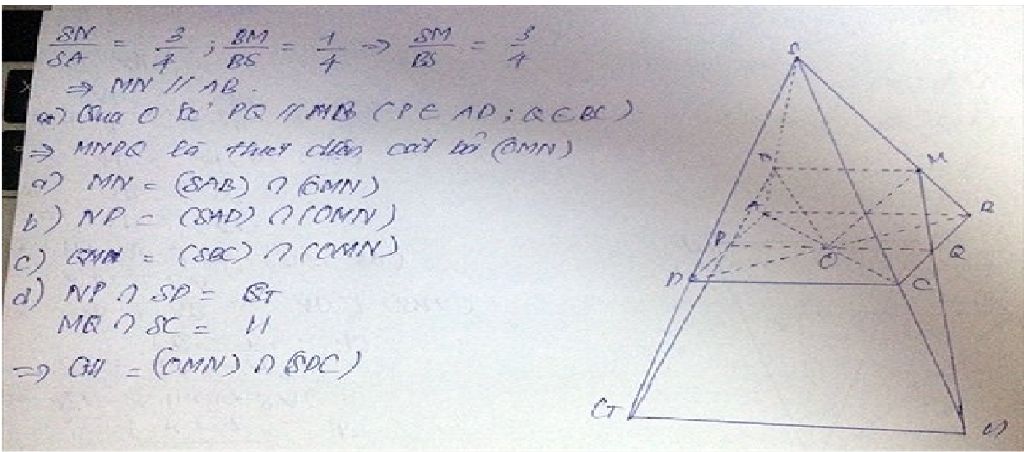 SN/SA = 3/4 ; BM/BS = 1/4 => SM/BS = 3/4
=> MN // AB.
a) Qua O kẻ PQ // AB (P ∈ AD ; Q ∈ BC)
=> MNPQ là thiết diện cắt bởi (OMN)
a) MN = (SAB) ∩ (OMN)
b) NP = (SAD) ∩ (OMN)
c) QM = (SBC) ∩ (OMN)
d) NP ∩ SD = G
MQ ∩ SC = H
=> GH = (OMN) ∩ (SDC)
S
N
M
A
B
P
O
Q
D
C
G
H